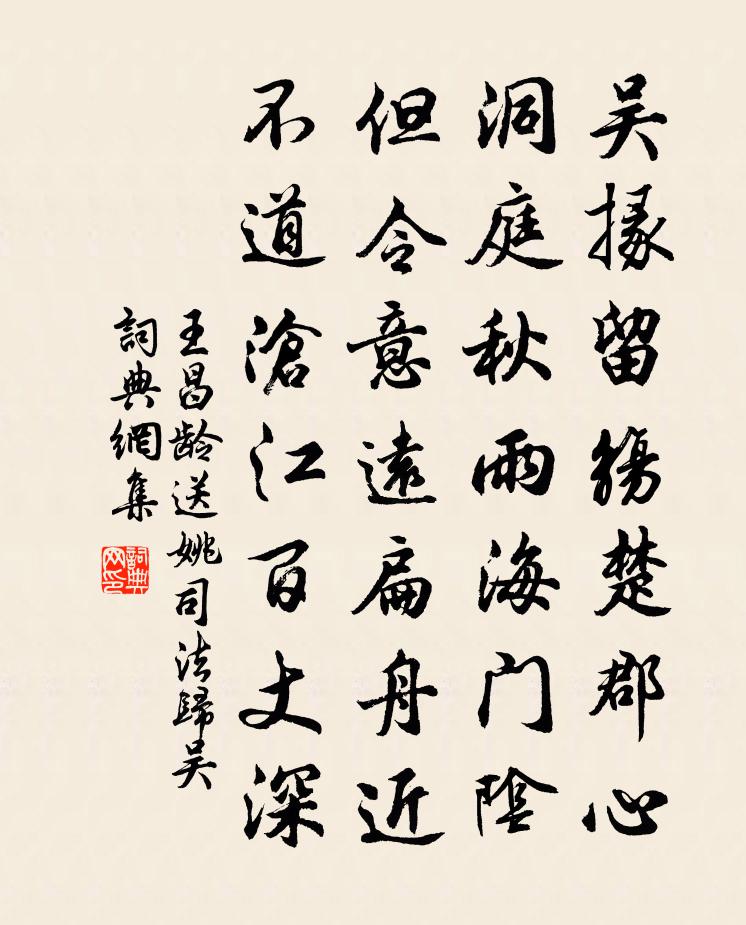 吴掾留觞楚郡心
洞庭秋雨海门阴
但令意遠扁舟近
不道滄江百丈深
王昌龄送姚司法歸吴
詞典網集
詞典网印